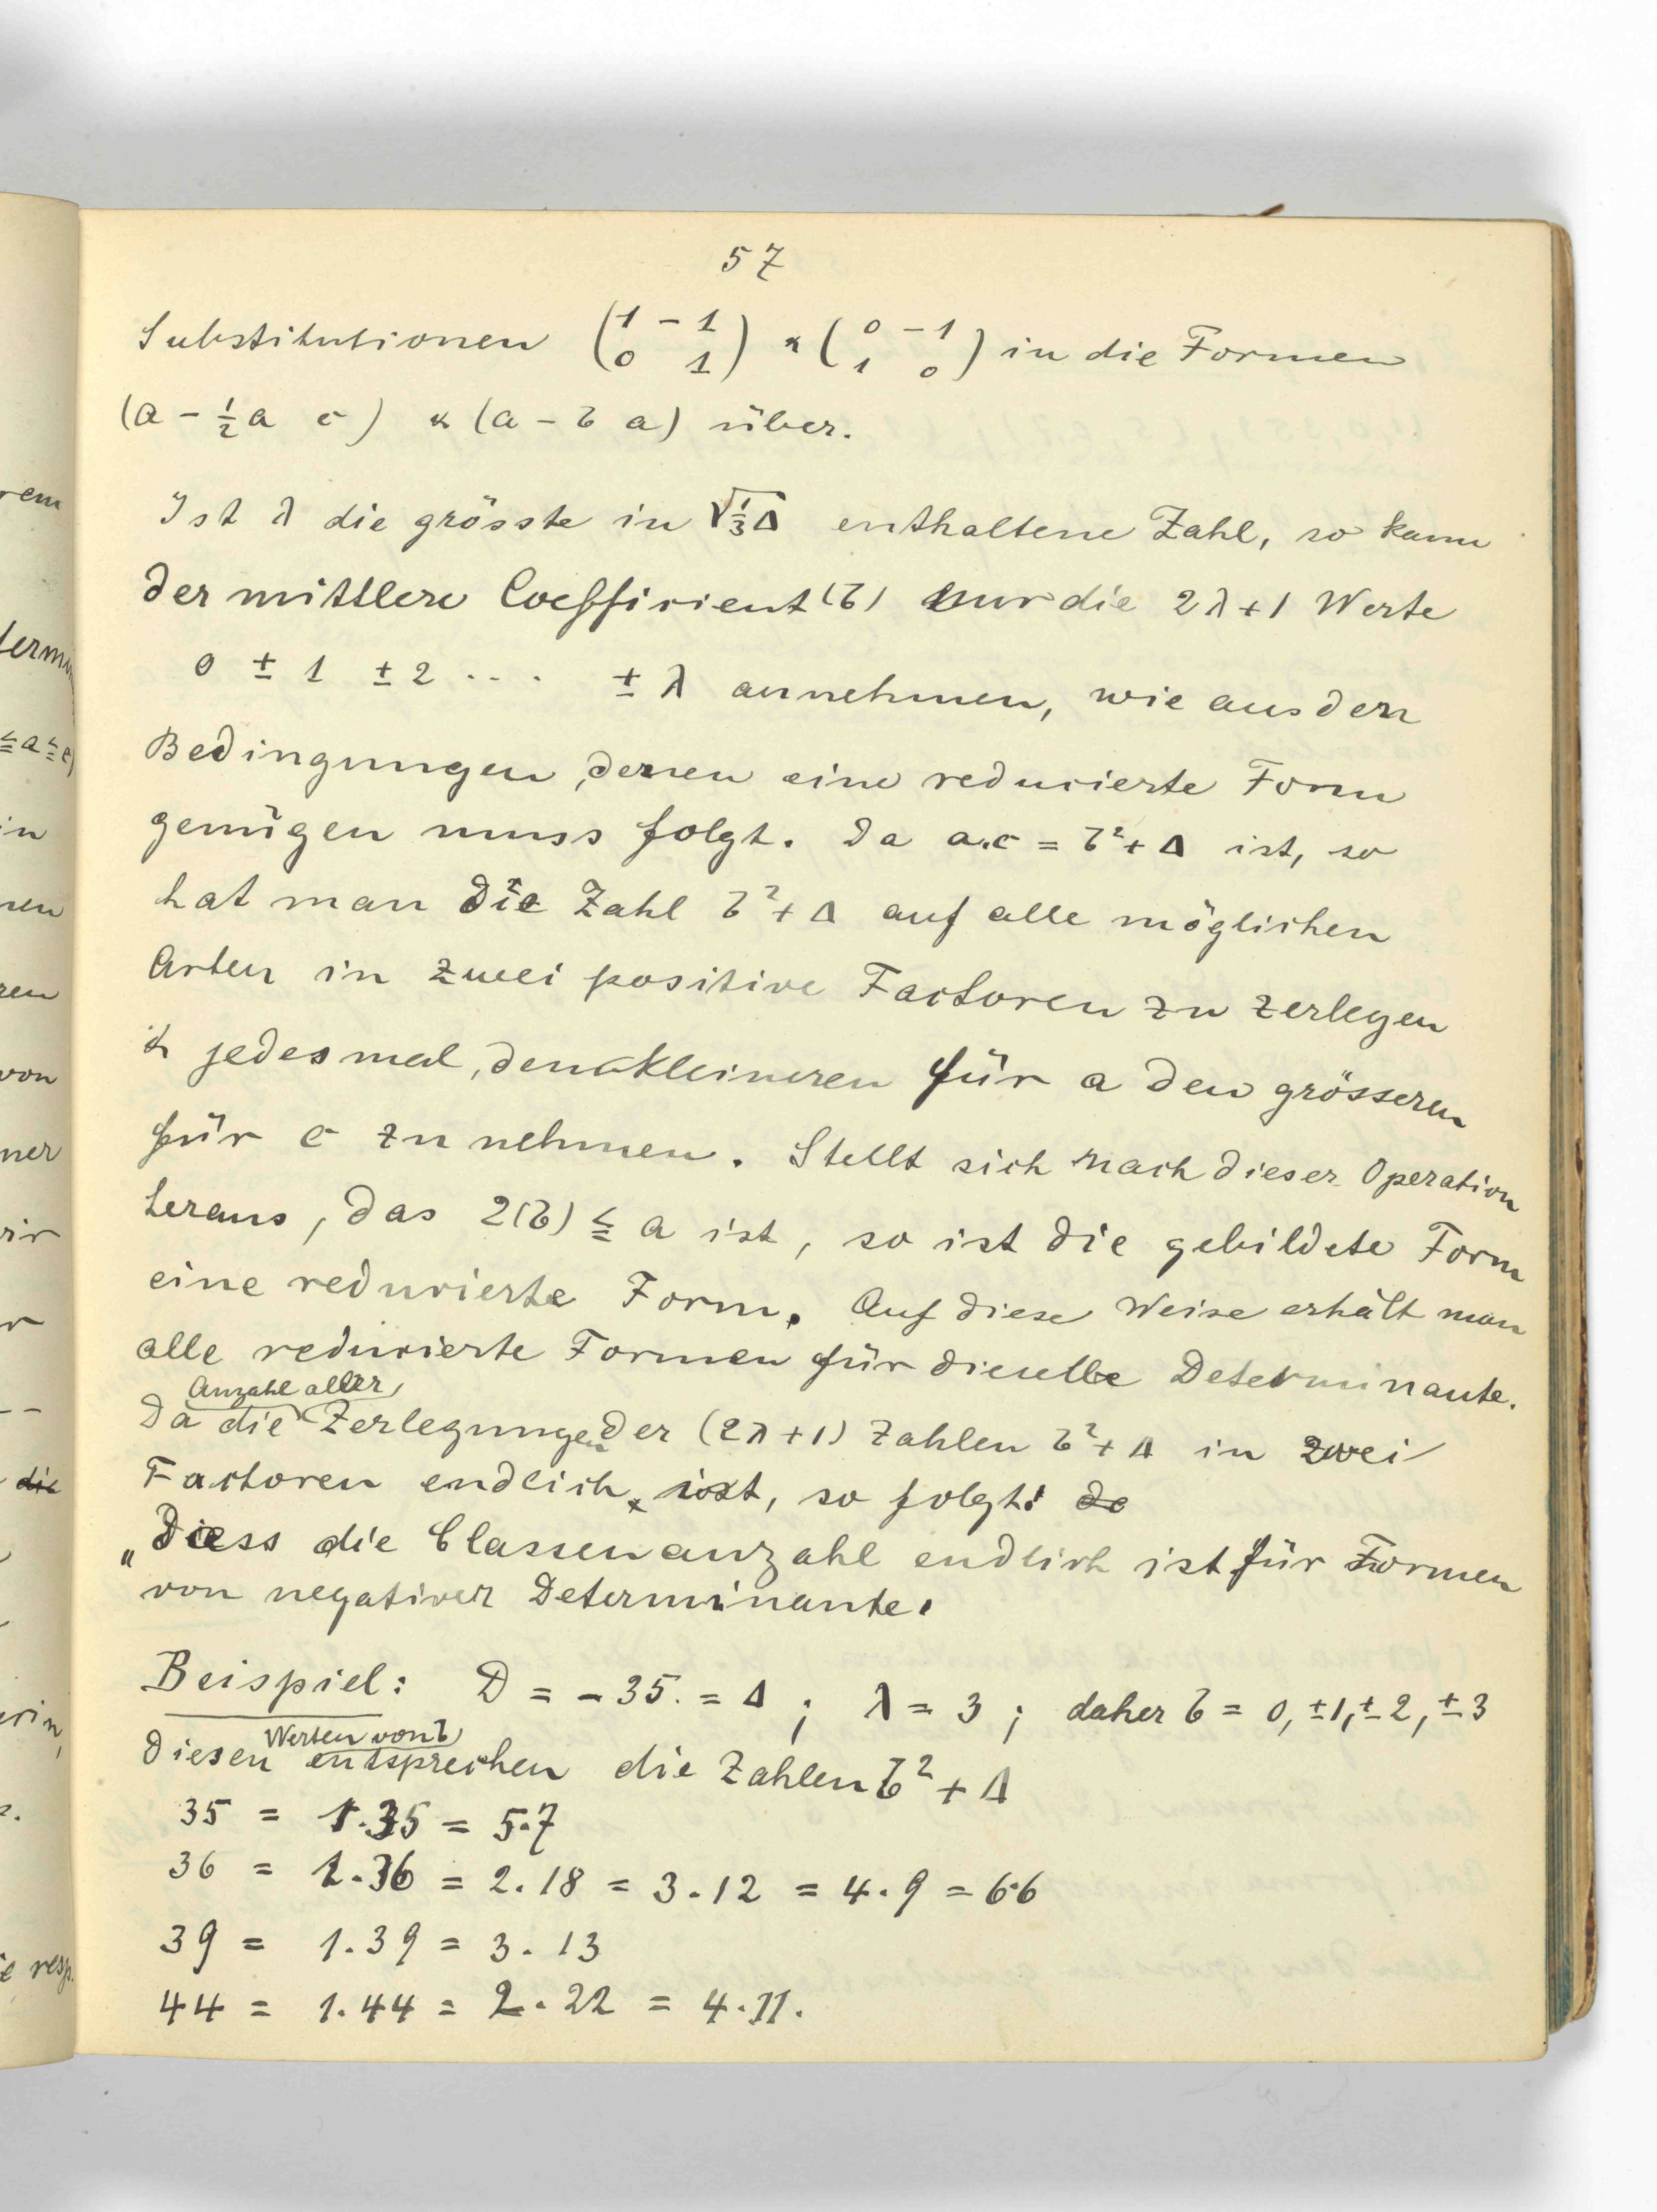 57
Substitutionen (1 -1 0 1) & (0 -1 1 0) in die Formen
(a - ½a c) & (a - b a) über.
Ist λ die grösste in √⅓Δ enthaltene Zahl, so kann
der mittlere Coefficient (b) nur die 2λ+1 Werte
0 ± 1 ± 2 ... ± λ annehmen, wie aus den
Bedingungen, denen eine reducierte Form
genügen muss folgt. Da a.c = b²+Δ ist, so
hat man die Zahl b²+Δ auf alle möglichen
Arten in zwei positive Factoren zu zerlegen
& jedesmal, den kleineren für a den grösseren
für c zu nehmen. Stellt sich nach dieser Operation
heraus, das 2(b) ≦ a ist, so ist die gebildete Form
eine reducierte Form. Auf diese Weise erhält man
alle reducierte Formen für dieselbe Determinante.
Da die Anzahl aller Zerlegungen der (2λ+1) Zahlen b²+Δ in zwei
Factoren endlich ist, so folgt: de
„Dass die Classenanzahl endlich ist für Formen
von negativer Determinante.
Beispiel: D = -35. = Δ ; λ = 3 ; daher b = 0, ±1, ±2, ±3
Diesen Werten von b entsprechen die Zahlen b² + Δ
35 = 1.35 = 5.7
36 = 1.36 = 2.18 = 3.12 = 4.9 = 6.6
39 = 1.39 = 3.13
44 = 1.44 = 2.22 = 4.11.
rem
≦a≦c)
in
nen
ren
von
ner
rir
r
die
rin,
e resp.